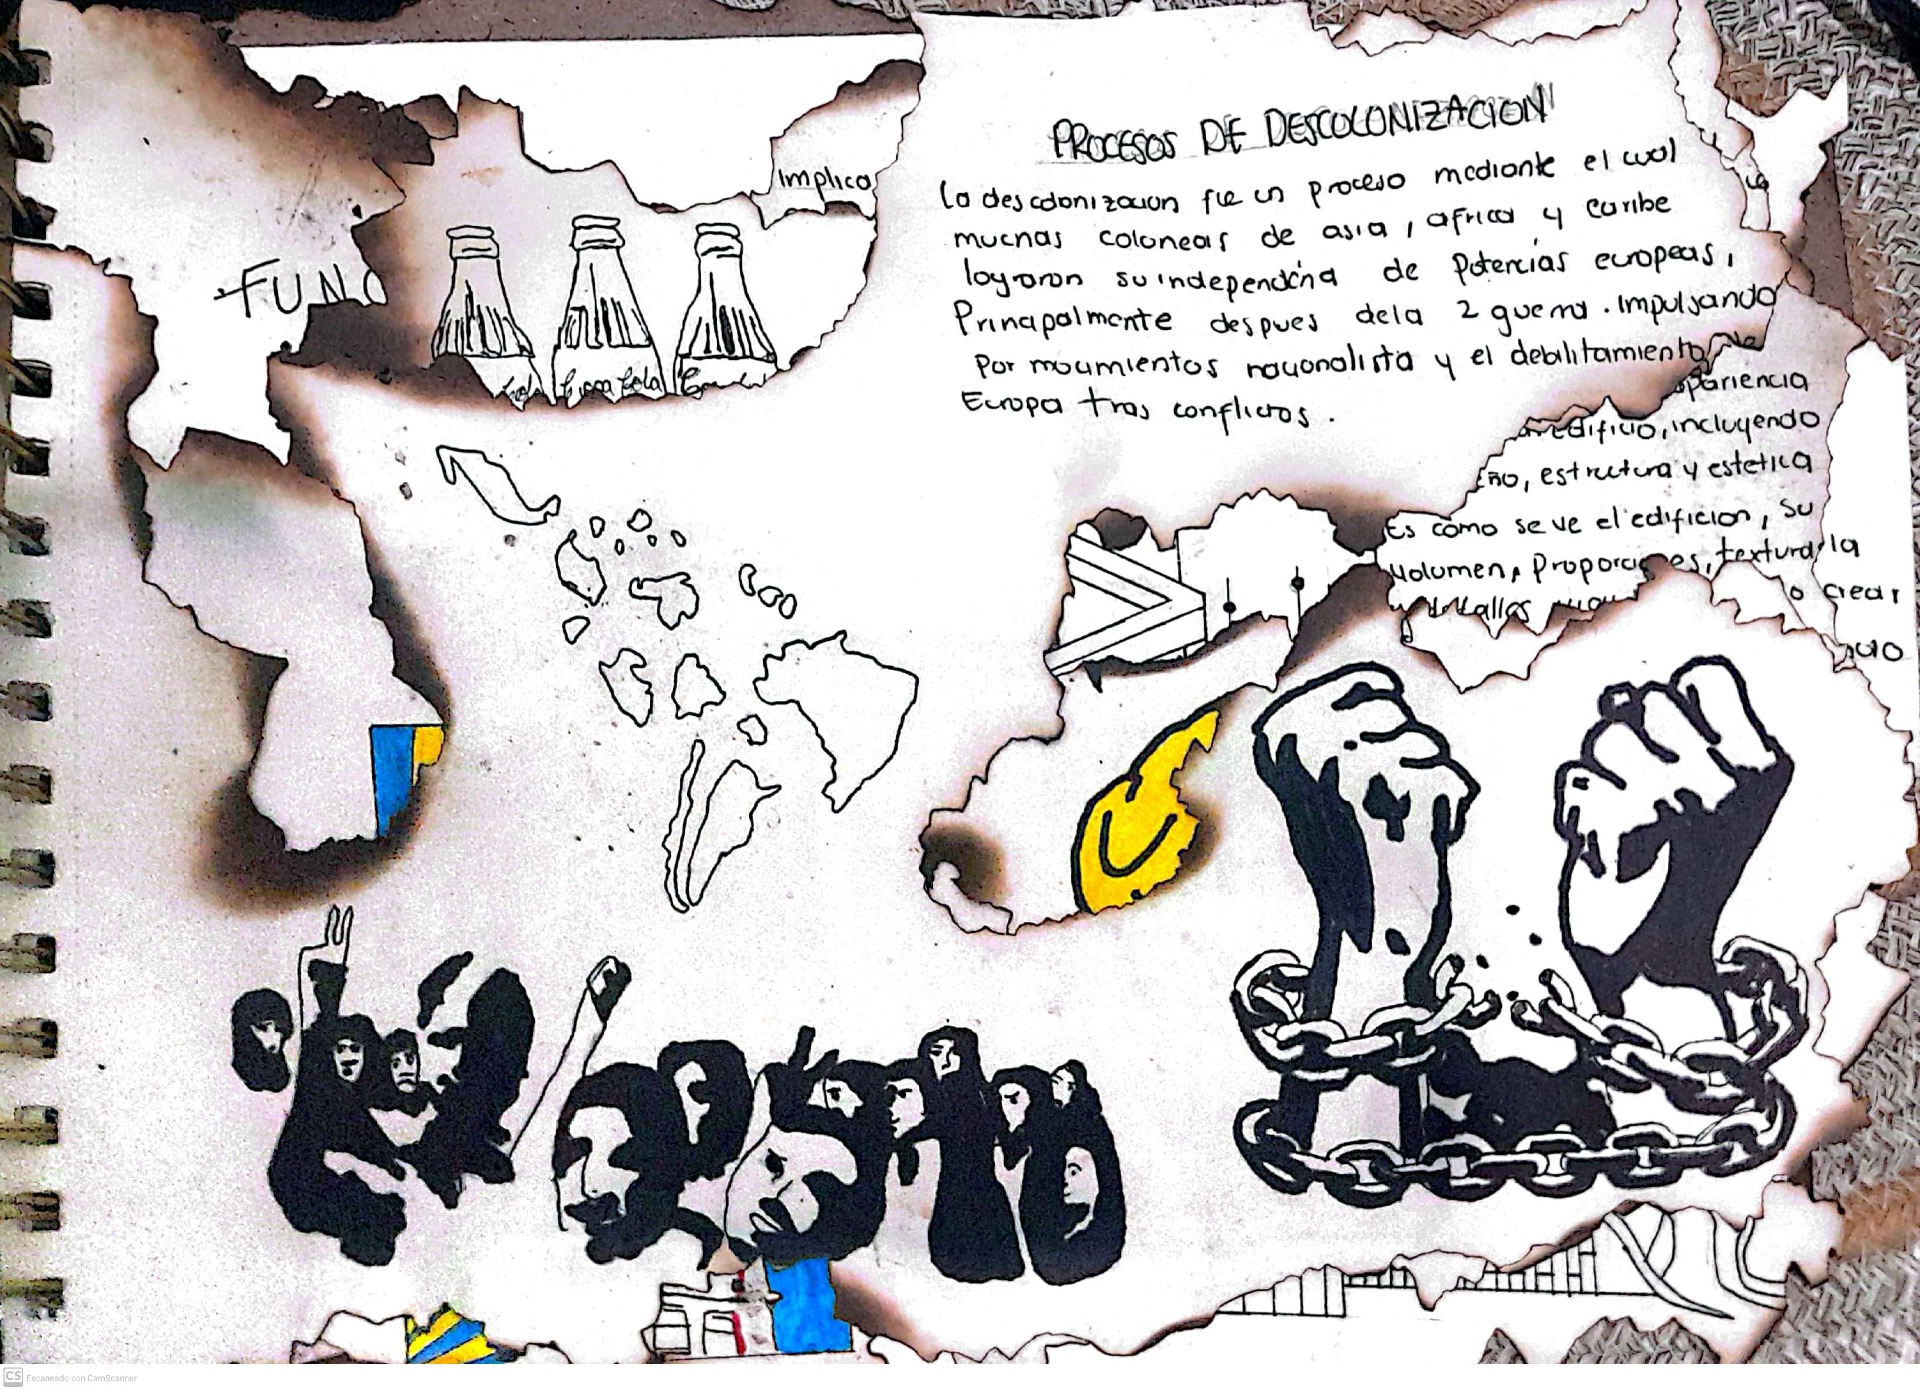 PROCESOS DE DESCOLONIZACION
La descolonización fue un proceso mediante el cual
muchas coloneas de asia, africa y caribe
lograron su independencia de potencias europeas,
Principalmente despues dela 2 guerra. Impulsando
por movimientos nacionalista y el debilitamiento de
Europa tras conflictos.
Implica
FUNC
Cola Coca Cola
apariencia
edificio, incluyendo
eño, estructura y estetica
Es cómo se ve el edificion, su
volumen, Proporciones, textura, la
detalles
o crear
CS Escaneado con CamScanner